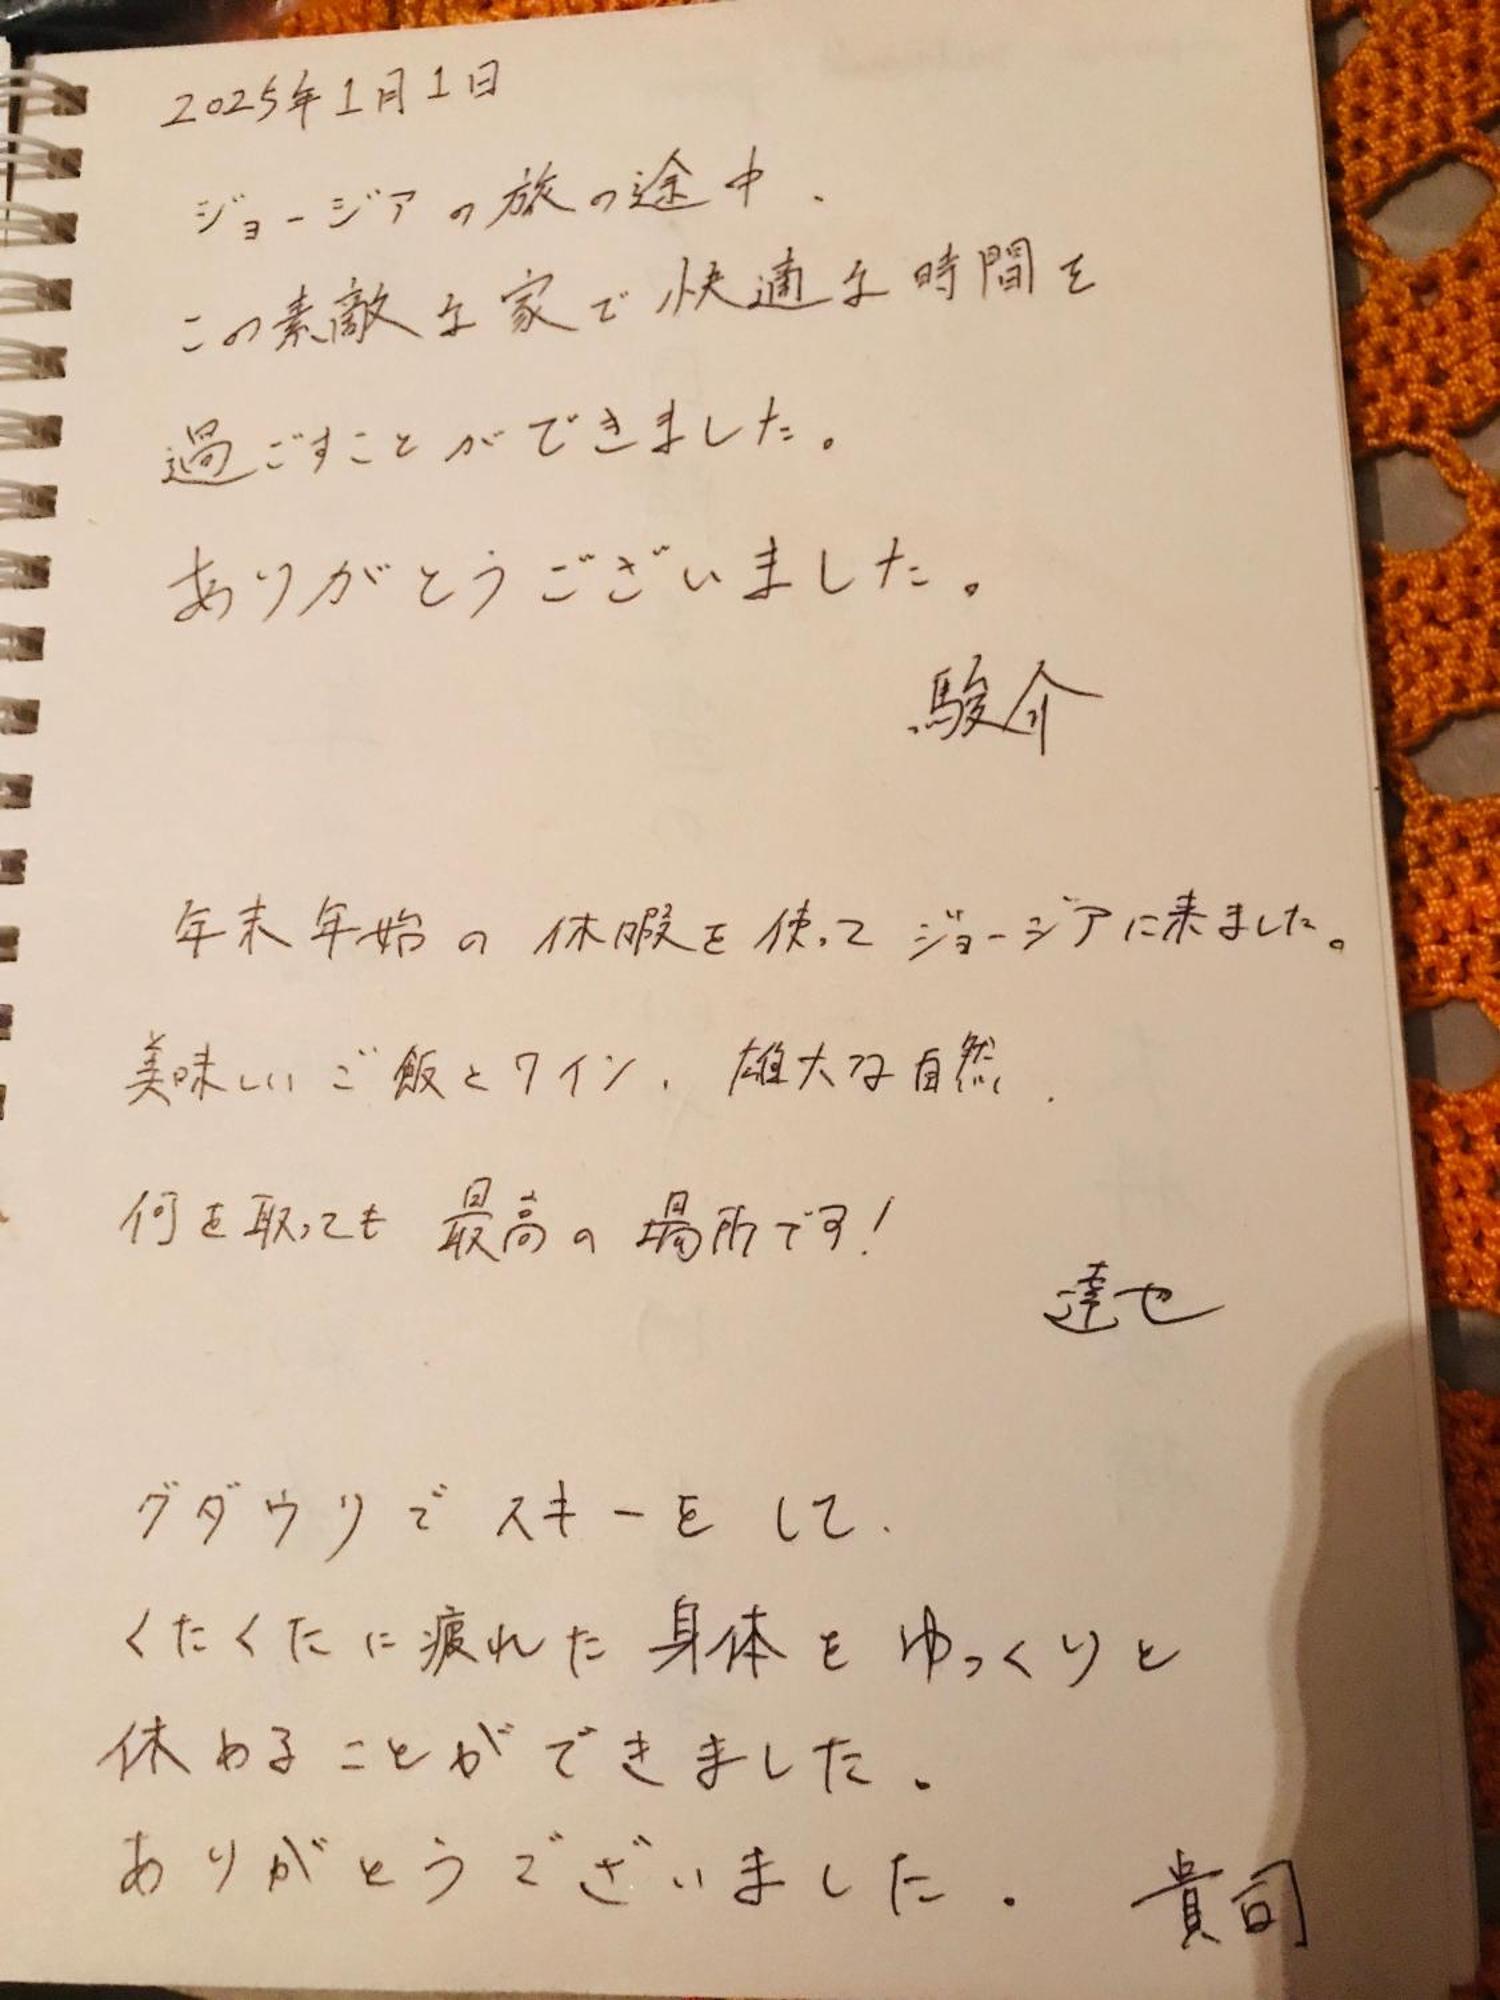 2025年1月1日
ジョージアの旅の途中、
この素敵な家で快適な時間を
過ごすことができました。
ありがとうございました。
駿介
年末年始の休暇を使ってジョージアに来ました。
美味しいご飯とワイン、雄大な自然、
何を取っても最高の場所です!
達也
グダウリでスキーをして、
くたくたに疲れた身体をゆっくりと
休めることができました。
ありがとうございました。 貴司